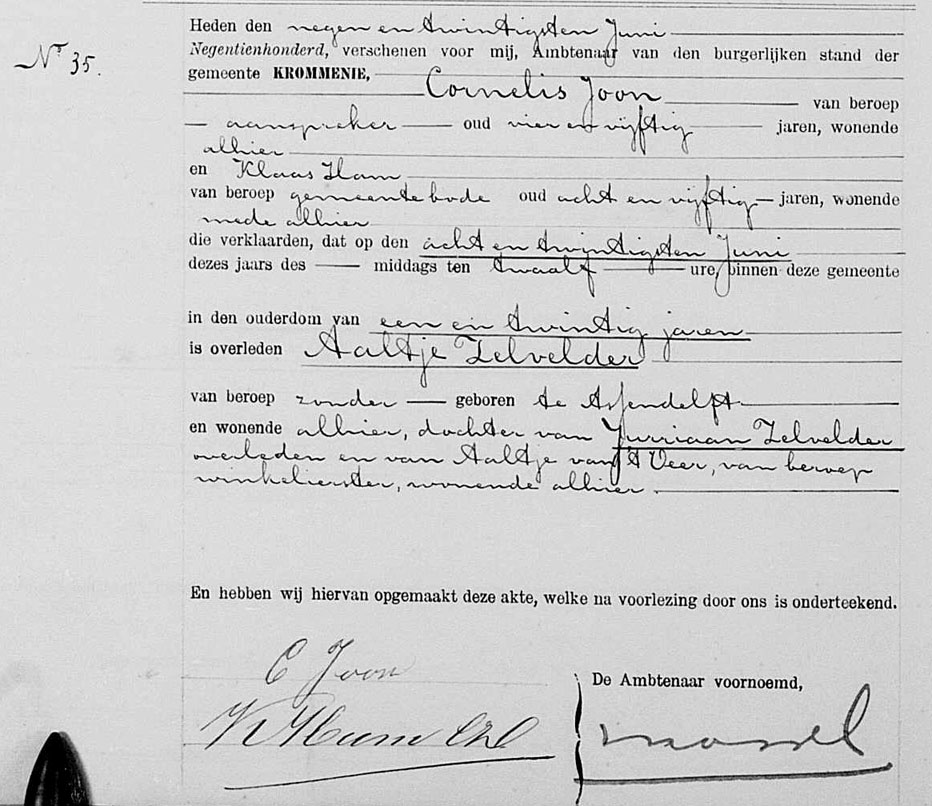 Nr 35.
Heden den negen en twintigsten Juni
Negentienhonderd, verschenen voor mij, Ambtenaar van den burgerlijken stand der
gemeente KROMMENIE,
Cornelis Joon van beroep
aanspreker oud vier en vijftig jaren, wonende
alhier
en Klaas Ham
van beroep gemeentebode oud acht en vijftig jaren, wonende
mede alhier
die verklaarden, dat op den acht en twintigsten Juni
dezes jaars des middags ten twaalf ure, binnen deze gemeente
in den ouderdom van een en twintig jaren
is overleden Aaltje Zelvelder
van beroep zonder geboren te Assendelft
en wonende alhier, dochter van Jurriaan Zelvelder
overleden en van Aaltje van 't Veer, van beroep
winkelierster, wonende alhier.
En hebben wij hiervan opgemaakt deze akte, welke na voorlezing door ons is onderteekend.
C Joon
De Ambtenaar voornoemd,
K Ham